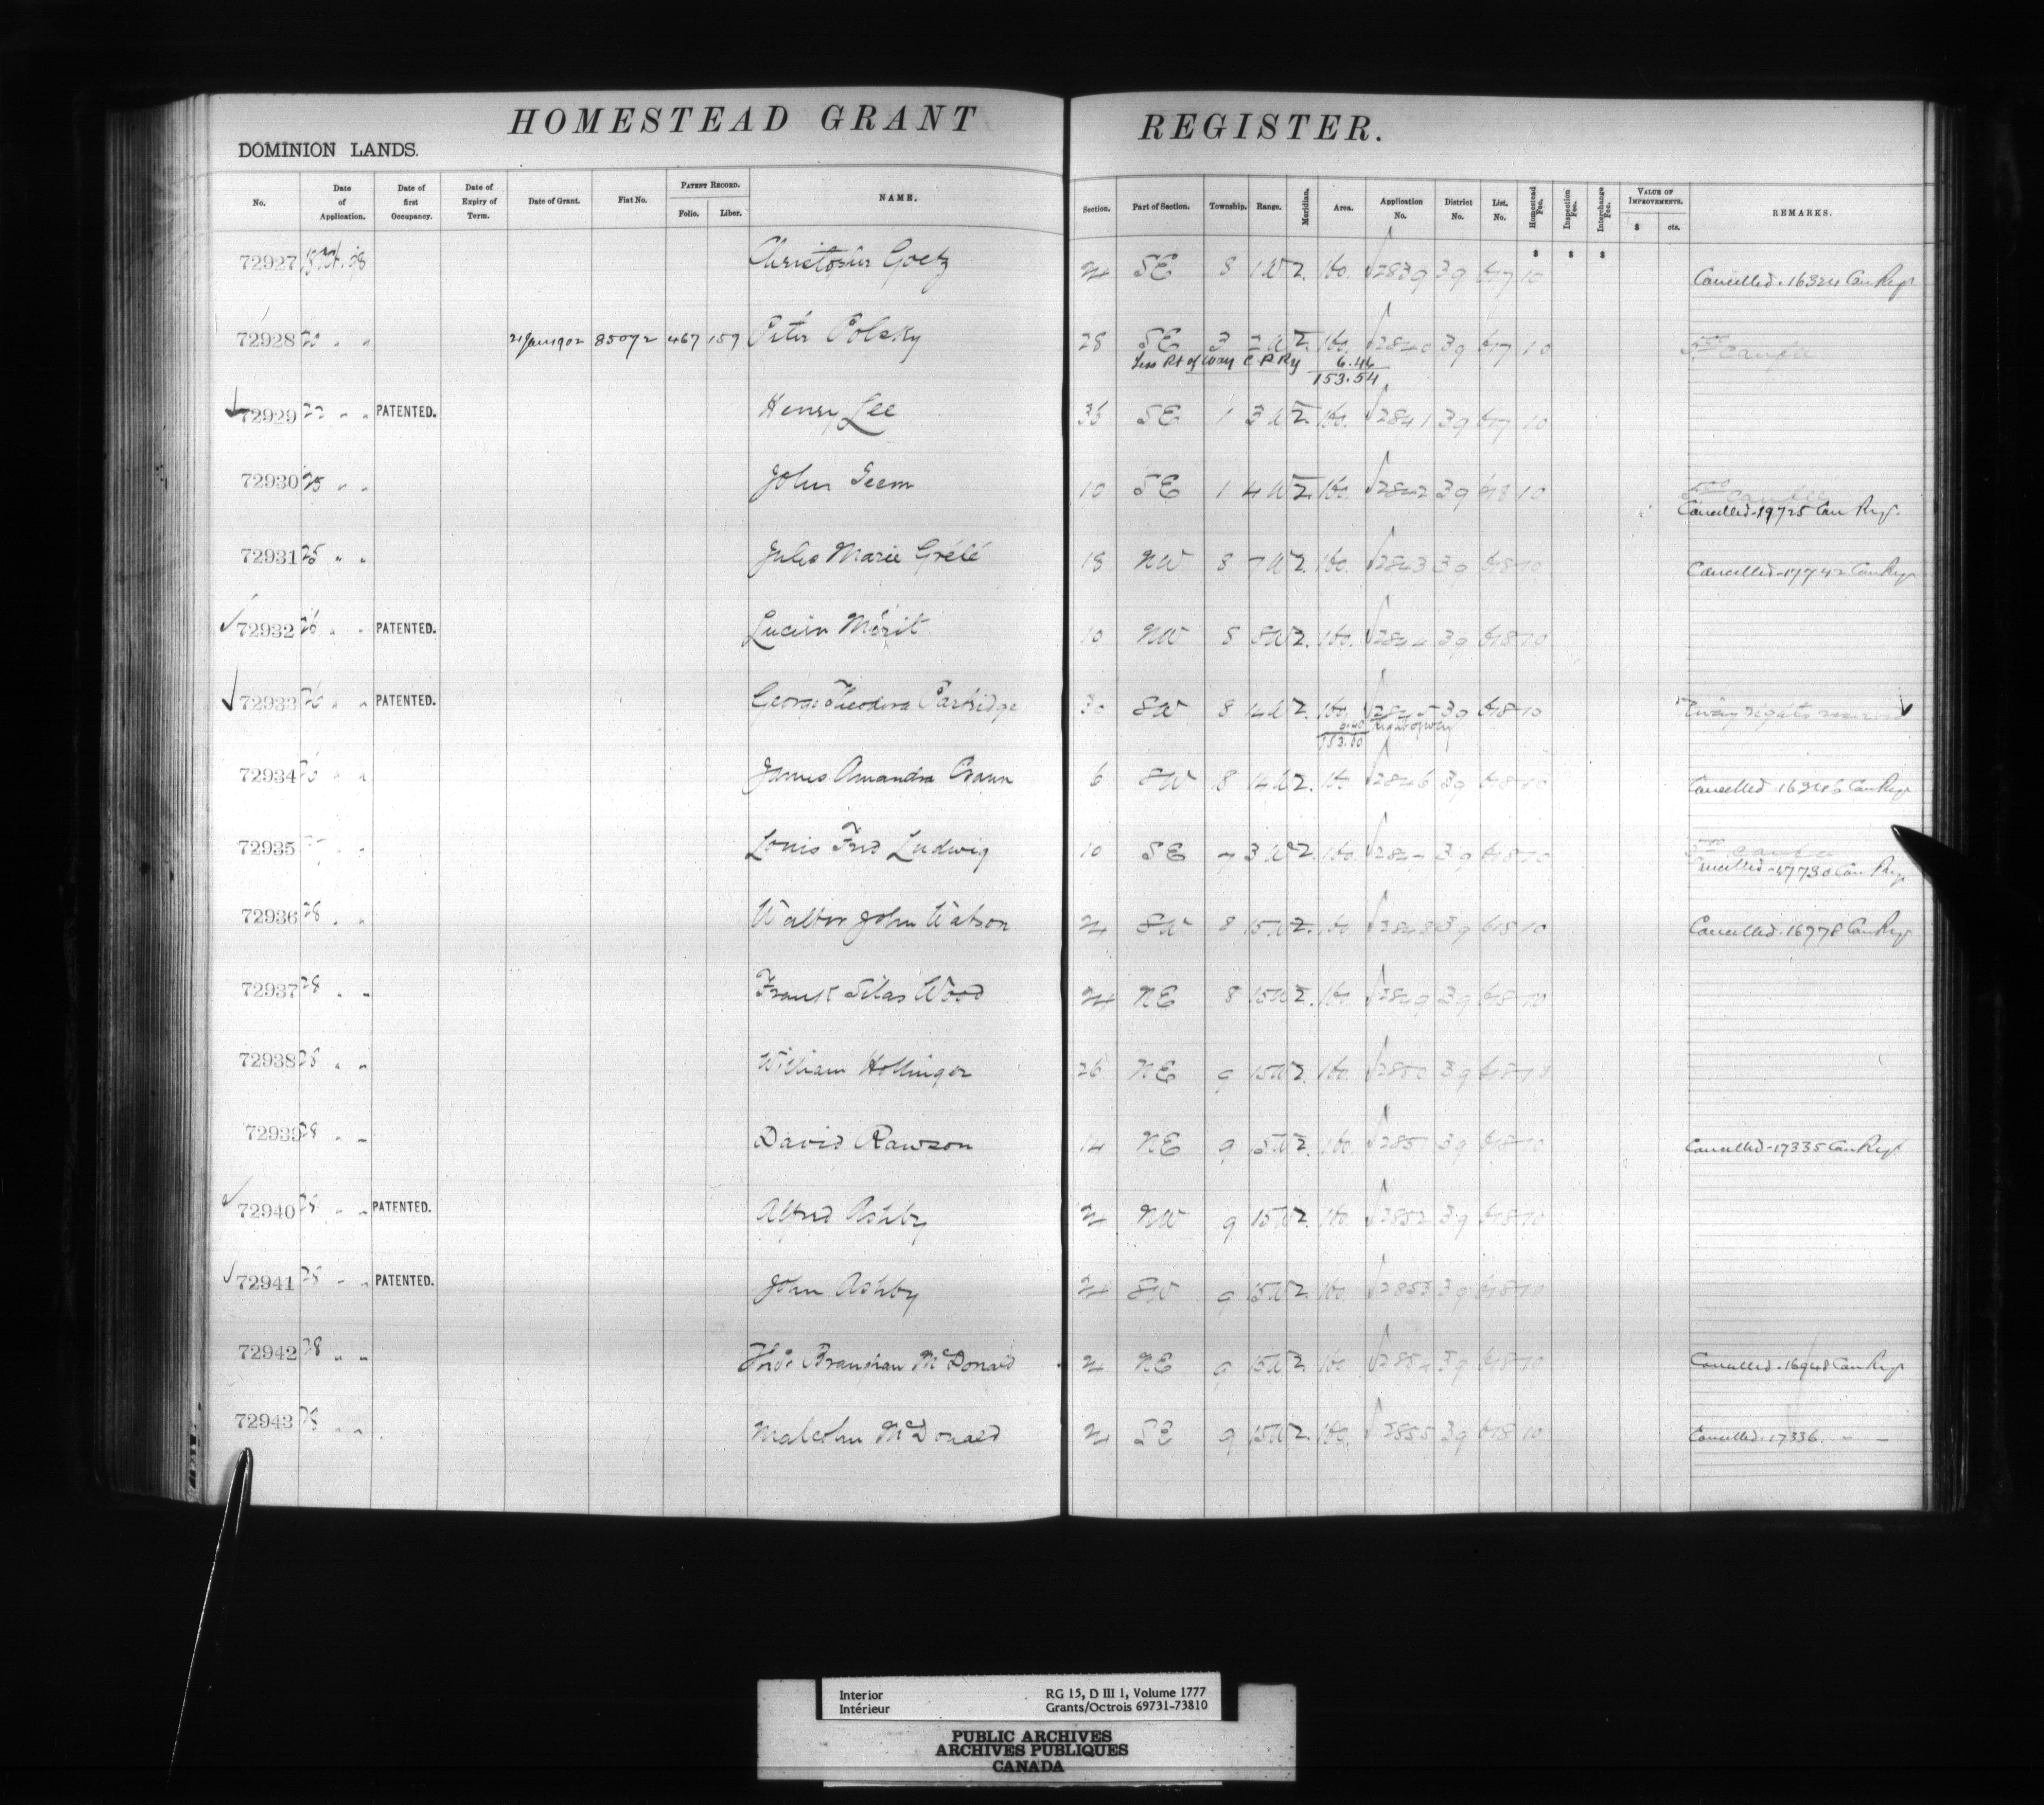 HOMESTEAD GRANT REGISTER.
DOMINION LANDS.
No. Date of Application. Date of first Occupancy. Date of Expiry of Term. Date of Grant. Fiat No. PATENT RECORD. Folio. Liber. NAME. Section. Part of Section. Township. Range. Meridian. Area. Application No. District No. List. No. Homestead Fee. Inspection Fee. Interchange Fee. VALUE OF IMPROVEMENTS. $ cts. REMARKS.
$ $ $
72927 Christopher Goetz SE 8 1 W 2. 160. 2839 39 10 Cancelled. 16324 Can Regr
72928 20 " " 21 Jan 1902 85072 467 157 Peter Polsky 28 SE 3 2 W 2. 160. 2840 39 10
Less Rt of Way C P Ry 6.46
153.54
72929 22 " " PATENTED. Henry Lee 36 SE 1 3 W 2. 160. 2841 39 10
72930 25 " " John 10 SE 1 4 W 2. 160. 2842 39 10
Cancelled. 19725 Can Regr.
72931 25 " " Jules Marie Grélé 18 NW 8 7 W 2. 160. 2843 39 10 Cancelled. 17742 Can Regr
72932 26 " " PATENTED. Lucien Mérit 10 NW 8 8 W 2. 160. 2844 39 10
72933 26 " " PATENTED. George Theodore Partridge 30 SW 8 14 W 2. 160. 2845 39 10
Right of Way
153.60
72934 " " James Amandra 6 SW 8 14 W 2. 160 2846 39 10 Cancelled. 16346 Can Regr
72935 " " Louis Fred Ludwig 10 SE 7 3 W 2. 160. 2847 39 10
Cancelled. 17730 Can Regr
72936 28 " " Walter John Watson 24 SW 8 15 W 2. 160. 2848 39 10 Cancelled. 16778 Can Regr
72937 28 " " Frank Silas Wood 24 NE 8 15 W 2. 160. 2849 39 10
72938 28 " " William Hollinger 26 NE 9 15 W 2. 160. 2850 39 10
72939 28 " " David Rawson 14 NE 9 15 W 2. 160. 2851 39 10 Cancelled. 17335 Can Regr
72940 28 " " PATENTED. Alfred Ashby NW 9 15 W 2. 160. 2852 39 10
72941 28 " " PATENTED. John Ashby 24 SW 9 15 W 2. 160. 2853 39 10
72942 28 " " McDonald NE 9 15 W 2. 160 2854 39 10 Cancelled. 16948 Can Regr
72943 28 " " Malcolm McDonald SE 9 15 W 2. 160. 2855 39 10 Cancelled. 17336. " "
Interior RG 15, D III 1, Volume 1777
Intérieur Grants/Octrois 69731-73810
PUBLIC ARCHIVES
ARCHIVES PUBLIQUES
CANADA